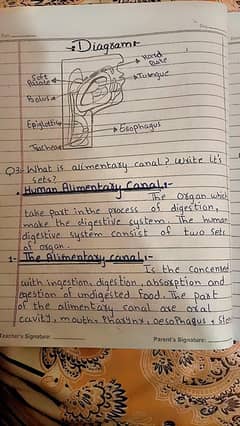 Diagram
Hard
Palate
Soft
Palate
Tongue
Bolus
Epiglottis
Esophagus
Trachea
Q3- What is alimentary canal? Write it's
sets?
Human Alimentary Canal:-
The organ which
take part in the process of digestion,
make the digestive system. The human
digestive system consist of two sets
of organ.
1- The Alimentary canal:-
Is the concerned
with ingestion, digestion, absorption and
egestion of undigested food. The part
of the alimentary canal are oral
cavity, mouth, Pharynx, oesophagus,
Teacher's Signature:
Parent's Signature: